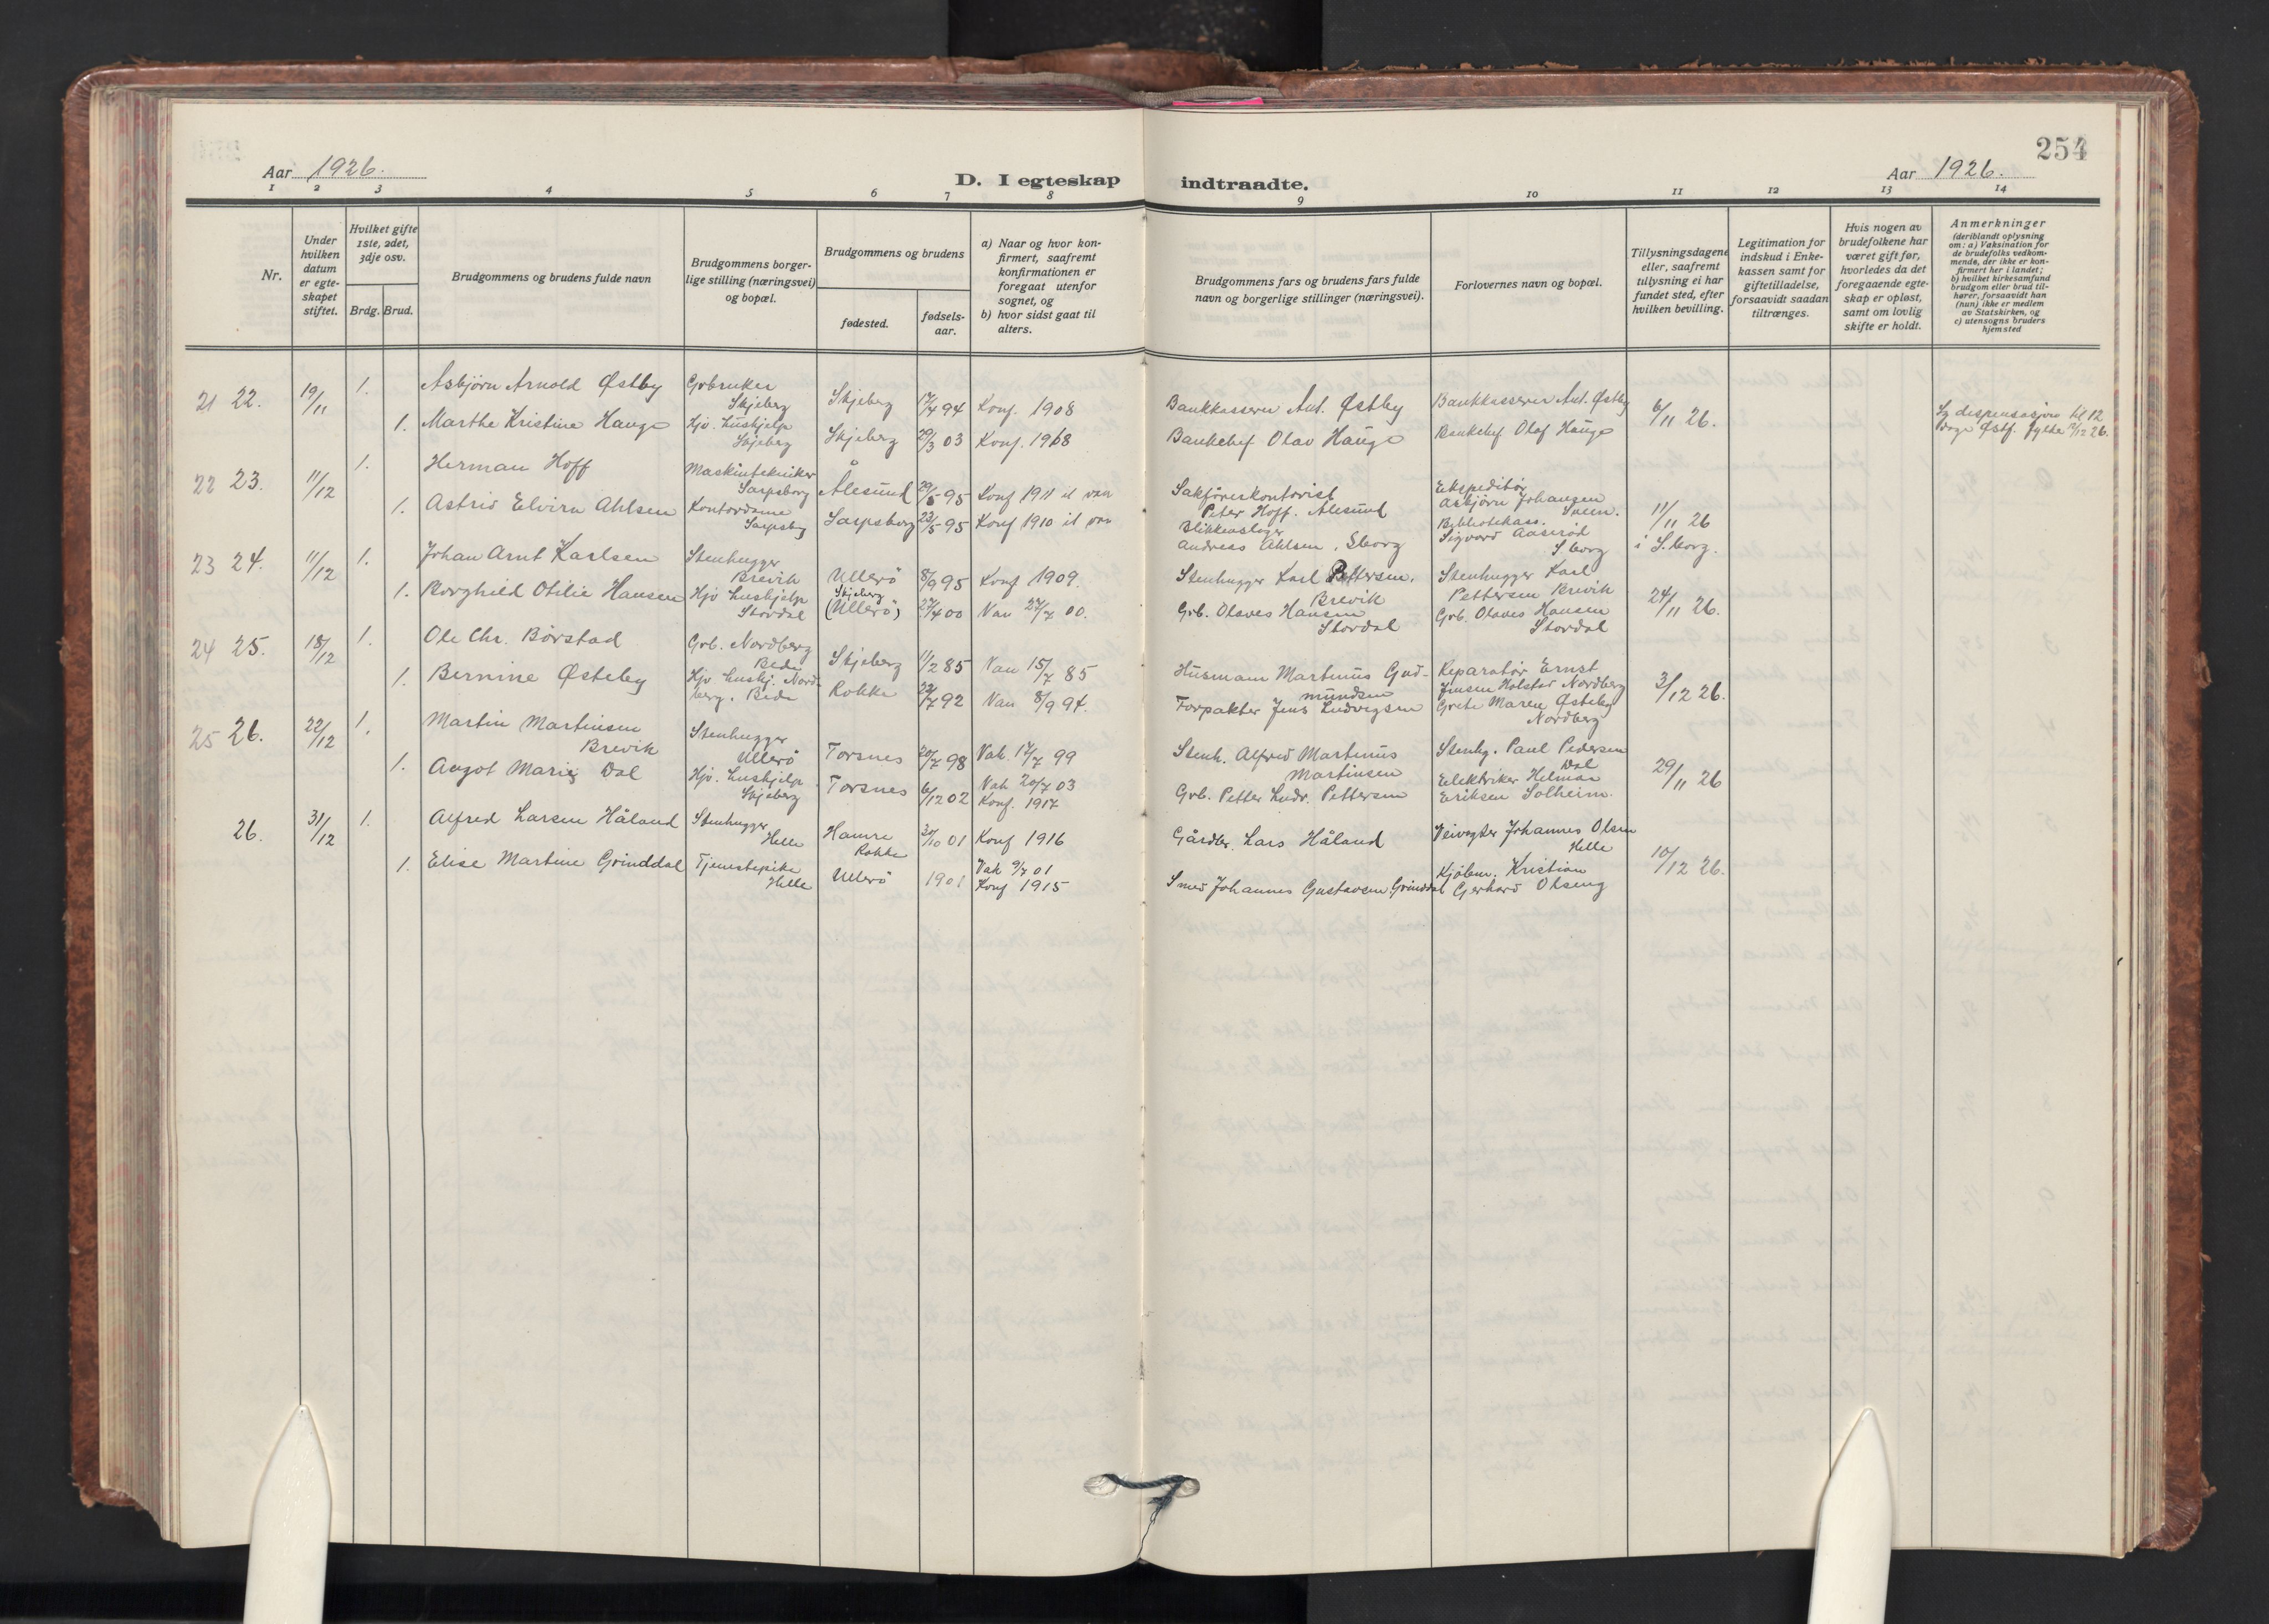 254
Aar 1926.
D. I egteskap indtraadte.
Aar 1926.
1 2 3 4 5 6 7 8 9 10 11 12 13 14
Nr.
Under hvilken datum er egte-skapet stiftet.
Hvilket gifte 1ste, 2det, 3dje osv.
Brdg. Brud.
Brudgommens og brudens fulde navn
Brudgommens borger-lige stilling (næringsvei) og bopæl.
Brudgommens og brudens
fødested.
fødsels-aar.
a) Naar og hvor kon-firmert, saafremt konfirmationen er foregaat utenfor sognet, og
b) hvor sidst gaat til alters.
Brudgommens fars og brudens fars fulde navn og borgerlige stillinger (næringsvei).
Forlovernes navn og bopæl.
Tillysningsdagene eller, saafremt tillysning ei har fundet sted, efter hvilken bevilling.
Legitimation for indskud i Enke-kassen samt for giftetilladelse, forsaavidt saadan tiltrænges.
Hvis nogen av brudefolkene har været gift før, hvorledes da det foregaaende egte-skap er opløst, samt om lovlig skifte er holdt.
Anmerkninger
(deriblandt oplysning om: a) Vaksination for de brudefolks vedkom-mende, der ikke er kon-firmert her i landet; b) hvilket kirkesamfund brudgom eller brud til-hører, forsaavidt han (hun) ikke er medlem av Statskirken, og c) utensogns bruders hjemsted
21 22. 19/11 1. Asbjørn Arnold Østby Grbruker Skjeberg Skjeberg 17/4 94 Konf. 1908 Bankkasserer Ant. Østby Bankkasserer Ant. Østby 6/11 26.
1. Marthe Kristine Hauge Hjv. hushjelp Skjeberg Skjeberg 29/3 03 Konf. 1918 Bankchef Olav Hauge Bankchef Olaf Hauge
dispensasjon til 12
Østf. fylke 26.
22 23. 11/12 1. Herman Hoff Maskintekniker Sarpsborg Ålesund 29/5 95 Konf 1911 Sakførerkontorist Peter Hoff. Ålesund Ekspeditør Asbjørn Johansen
1. Astrid Elvira Ahlsen Kontordame Sarpsbg Sarpsborg 23/5 95 Konf 1910 Blikkenslager Andreas Ahlsen, Sborg Sigvard Aaserød Sborg 11/11 26 i S.borg.
23 24. 11/12 1. Johan Arnt Karlsen Stenhugger Brevik Ullerö 8/9 95 Konf 1909. Stenhugger Karl Pettersen. Brevik Stenhugger Karl Pettersen Brevik
1. Borghild Otilie Hansen Hjv hushjelp Stordal Skjeberg (Ullerö) 27/4 00 Van 27/7 00. Grb. Olaves Hansen Stordal Grb. Olaves Hansen Stordal 24/11 26.
24 25. 18/12 1. Ole Chr. Börstad Grb. Nordberg Bede Skjeberg 11/2 85 Van 15/7 85 Husmann Martinus Gud-mundsen Reparatör Ernst Jensen Holstad Nordberg
1. Bernine Østeby Hjv hushj. Nord-berg. Bede Rokke 22/7 92 Van 8/9 94. Forpakter Jens Ludvigsen Grete Maren Østeby Nordberg 3/12 26.
25 26. 22/12 1. Martin Martinsen Brevik Stenhugger Ullerö Torsnes 20/7 98 Vak. 17/7 99 Stenh. Alfred Martinus Martinsen Stenhg. Paul Pedersen Dal
1. Aagot Marie Dal Hjv. hushjelp Skjeberg Torsnes 6/12 02 Vak 20/7 03 Konf. 1917 Grb. Petter Ludv. Pettersen Elektriker Helman Eriksen Solheim. 29/11 26
26. 31/12 1. Alfred Larsen Håland Stenhugger Helle Hamre Rokke 30/10 01 Konf 1916 Gårdbr. Lars Håland Veivogter Johannes Olsen Helle
1. Elise Martine Grinddal Tjenestepike Helle Ullerö 1901 Vak 9/7 01 Konf 1915 Smed Johannes Gustavsen Grinddal Kjöbm. Kristian Gerhard Olseng 10/12 26.